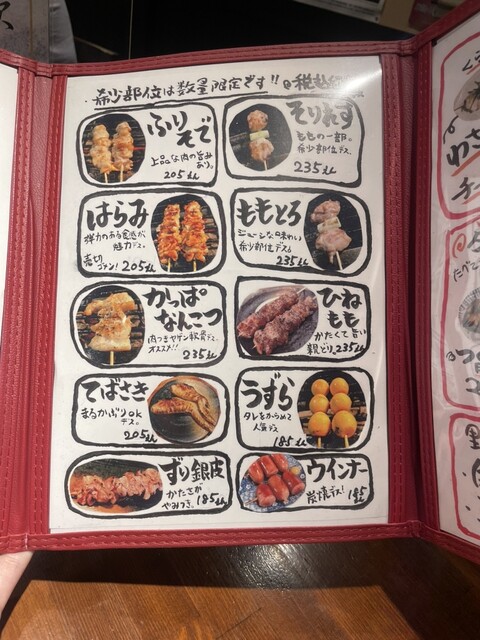 希少部位は数量限定です!!
ふりそで
上品な肉の旨み
あり。
205えん
そりれす
ももの一部。
希少部位デス。
235えん
はらみ
弾力のある食感が
魅力デス。
売切
ゴメン!
205えん
ももとろ
ジューシな味わい
希少部位デス。
235えん
かっぱ
なんこつ
肉つきヤゲン軟骨デス。
オススメ!!
235えん
ひね
もも
かたくて旨い
親どり。235えん
てばさき
まるかぶりok
デス。
205えん
うずら
タレをからめて
人気デス
185えん
ずり銀皮
かたさが
やみつき。
185えん
ウインナー
炭焼デス!
185えん